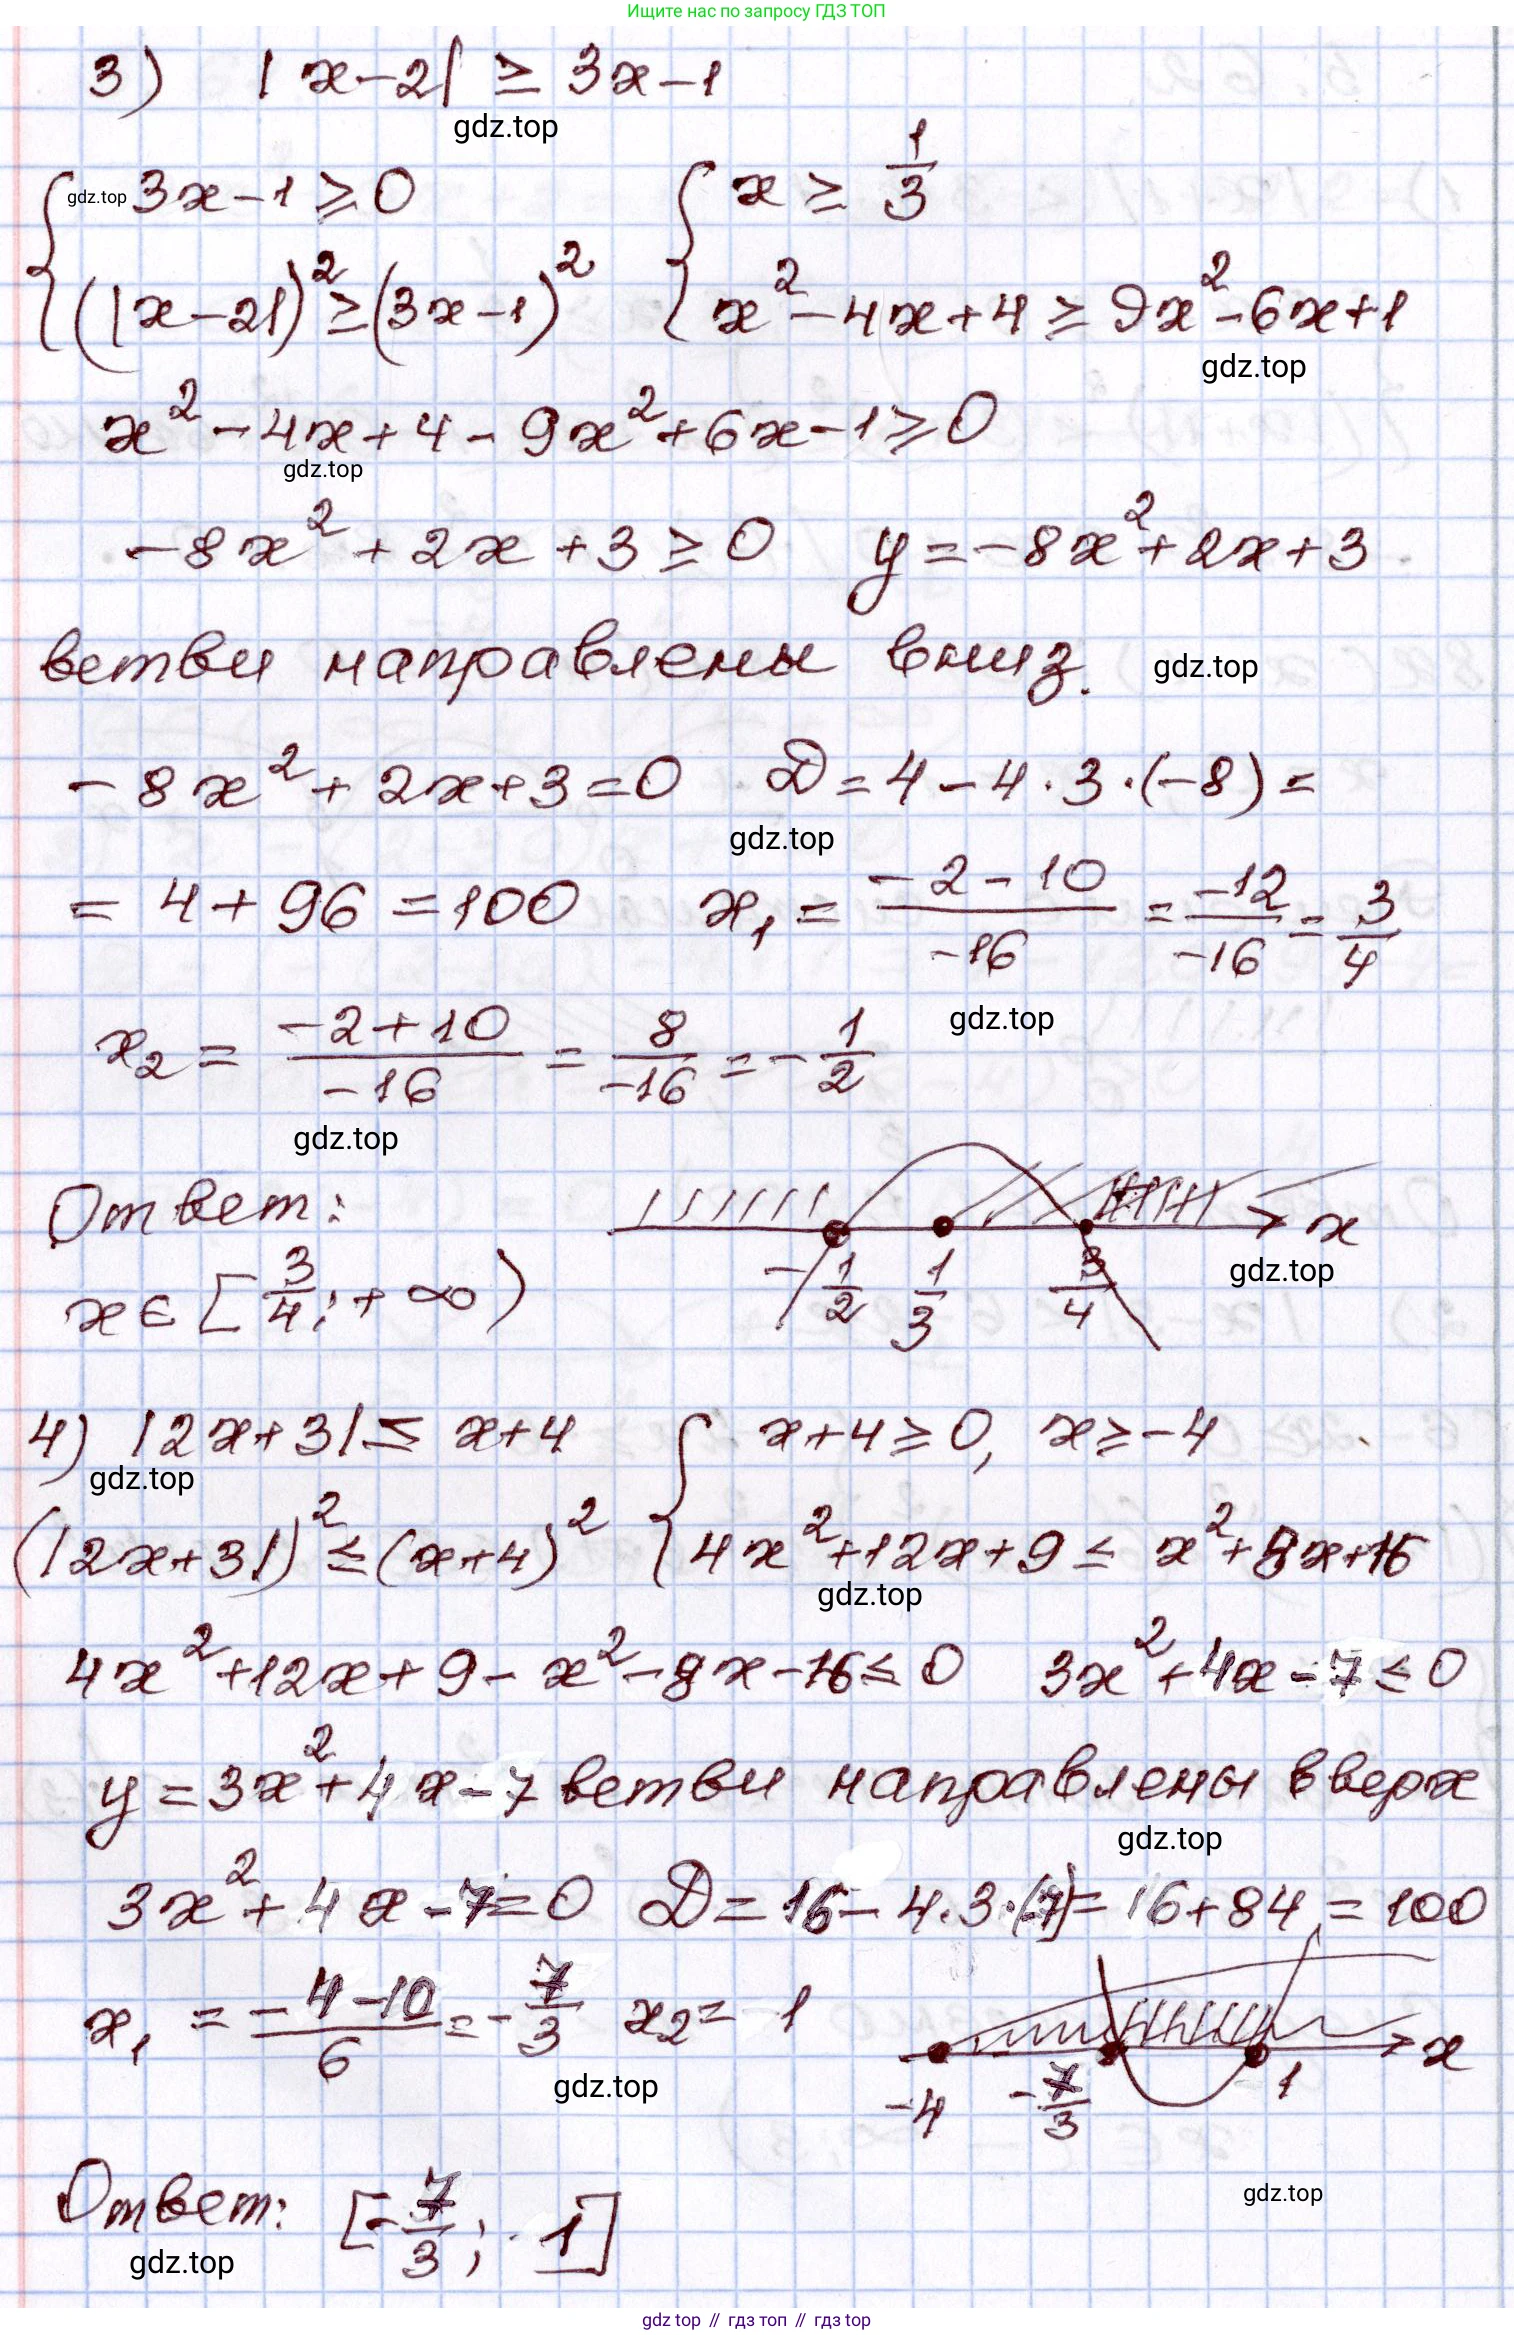 Ищите нас по запросу ГДЗ ТОП
3) |x-2| ≥ 3x-1
gdz.top
{ 3x-1 ≥ 0 { x ≥ 1/3
gdz.top
(|x-2|)² ≥ (3x-1)² x²-4x+4 ≥ 9x²-6x+1
gdz.top
x²-4x+4-9x²+6x-1 ≥ 0
gdz.top
-8x²+2x+3 ≥ 0 y=-8x²+2x+3
ветви направлены вниз.
gdz.top
-8x²+2x+3=0 D=4-4·3·(-8)=
gdz.top
=4+96=100 x₁ = (-2-10)/(-16) = (-12)/(-16) = 3/4
gdz.top
x₂ = (-2+10)/(-16) = 8/(-16) = -1/2
gdz.top
Ответ:
x
x∈[3/4;+∞)
-1/2 1/3 3/4
gdz.top
4) |2x+3| ≤ x+4 { x+4 ≥ 0, x ≥ -4
gdz.top
(|2x+3|)² ≤ (x+4)² 4x²+12x+9 ≤ x²+8x+16
gdz.top
4x²+12x+9-x²-8x-16 ≤ 0 3x²+4x-7 ≤ 0
y=3x²+4x-7 ветви направлены вверх
gdz.top
3x²+4x-7=0 D=16-4·3·(-7)=16+84=100
x₁ = (-4-10)/6 = -7/3 x₂= 1
x
gdz.top
-4 -7/3 1
gdz.top
Ответ: [-7/3; 1]
gdz.top
gdz top // гдз топ // гдз top